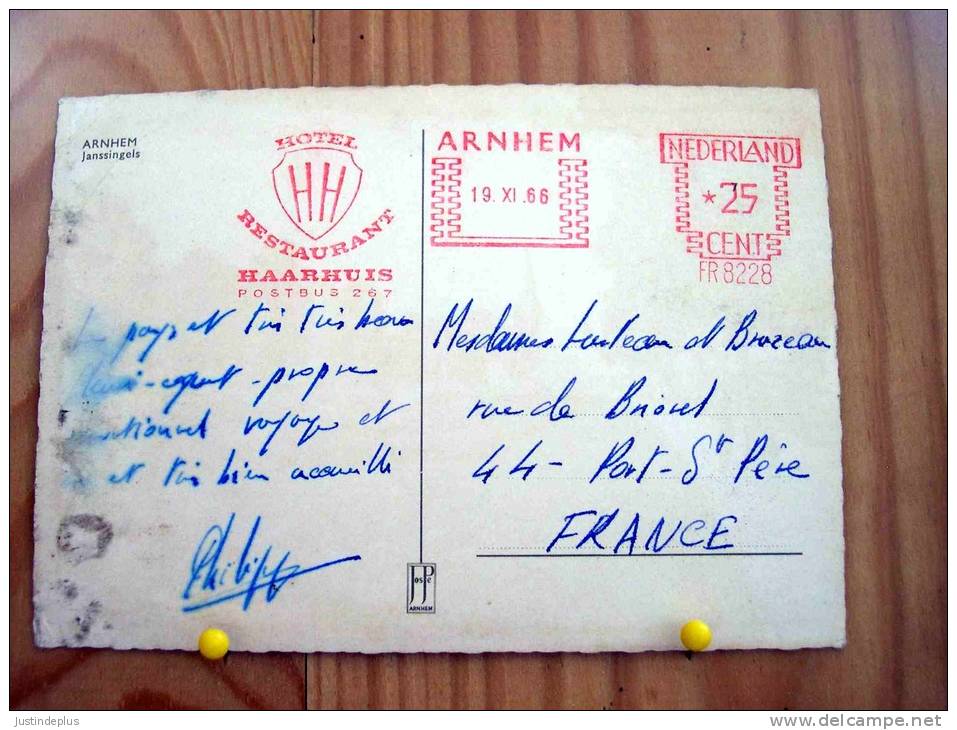 ARNHEM
Janssingels
HOTEL
HH
RESTAURANT
HAARHUIS
POSTBUS 267
ARNHEM
19. XI .66
NEDERLAND
*25
CENT
FR 8228
pays est très très beau
propre
voyage et
et très bien accueilli
Philippe
Mesdames et Brozeau
rue de
44 - Port-St Père
FRANCE
JosPé
ARNHEM
justindeplus
www.delcampe.net